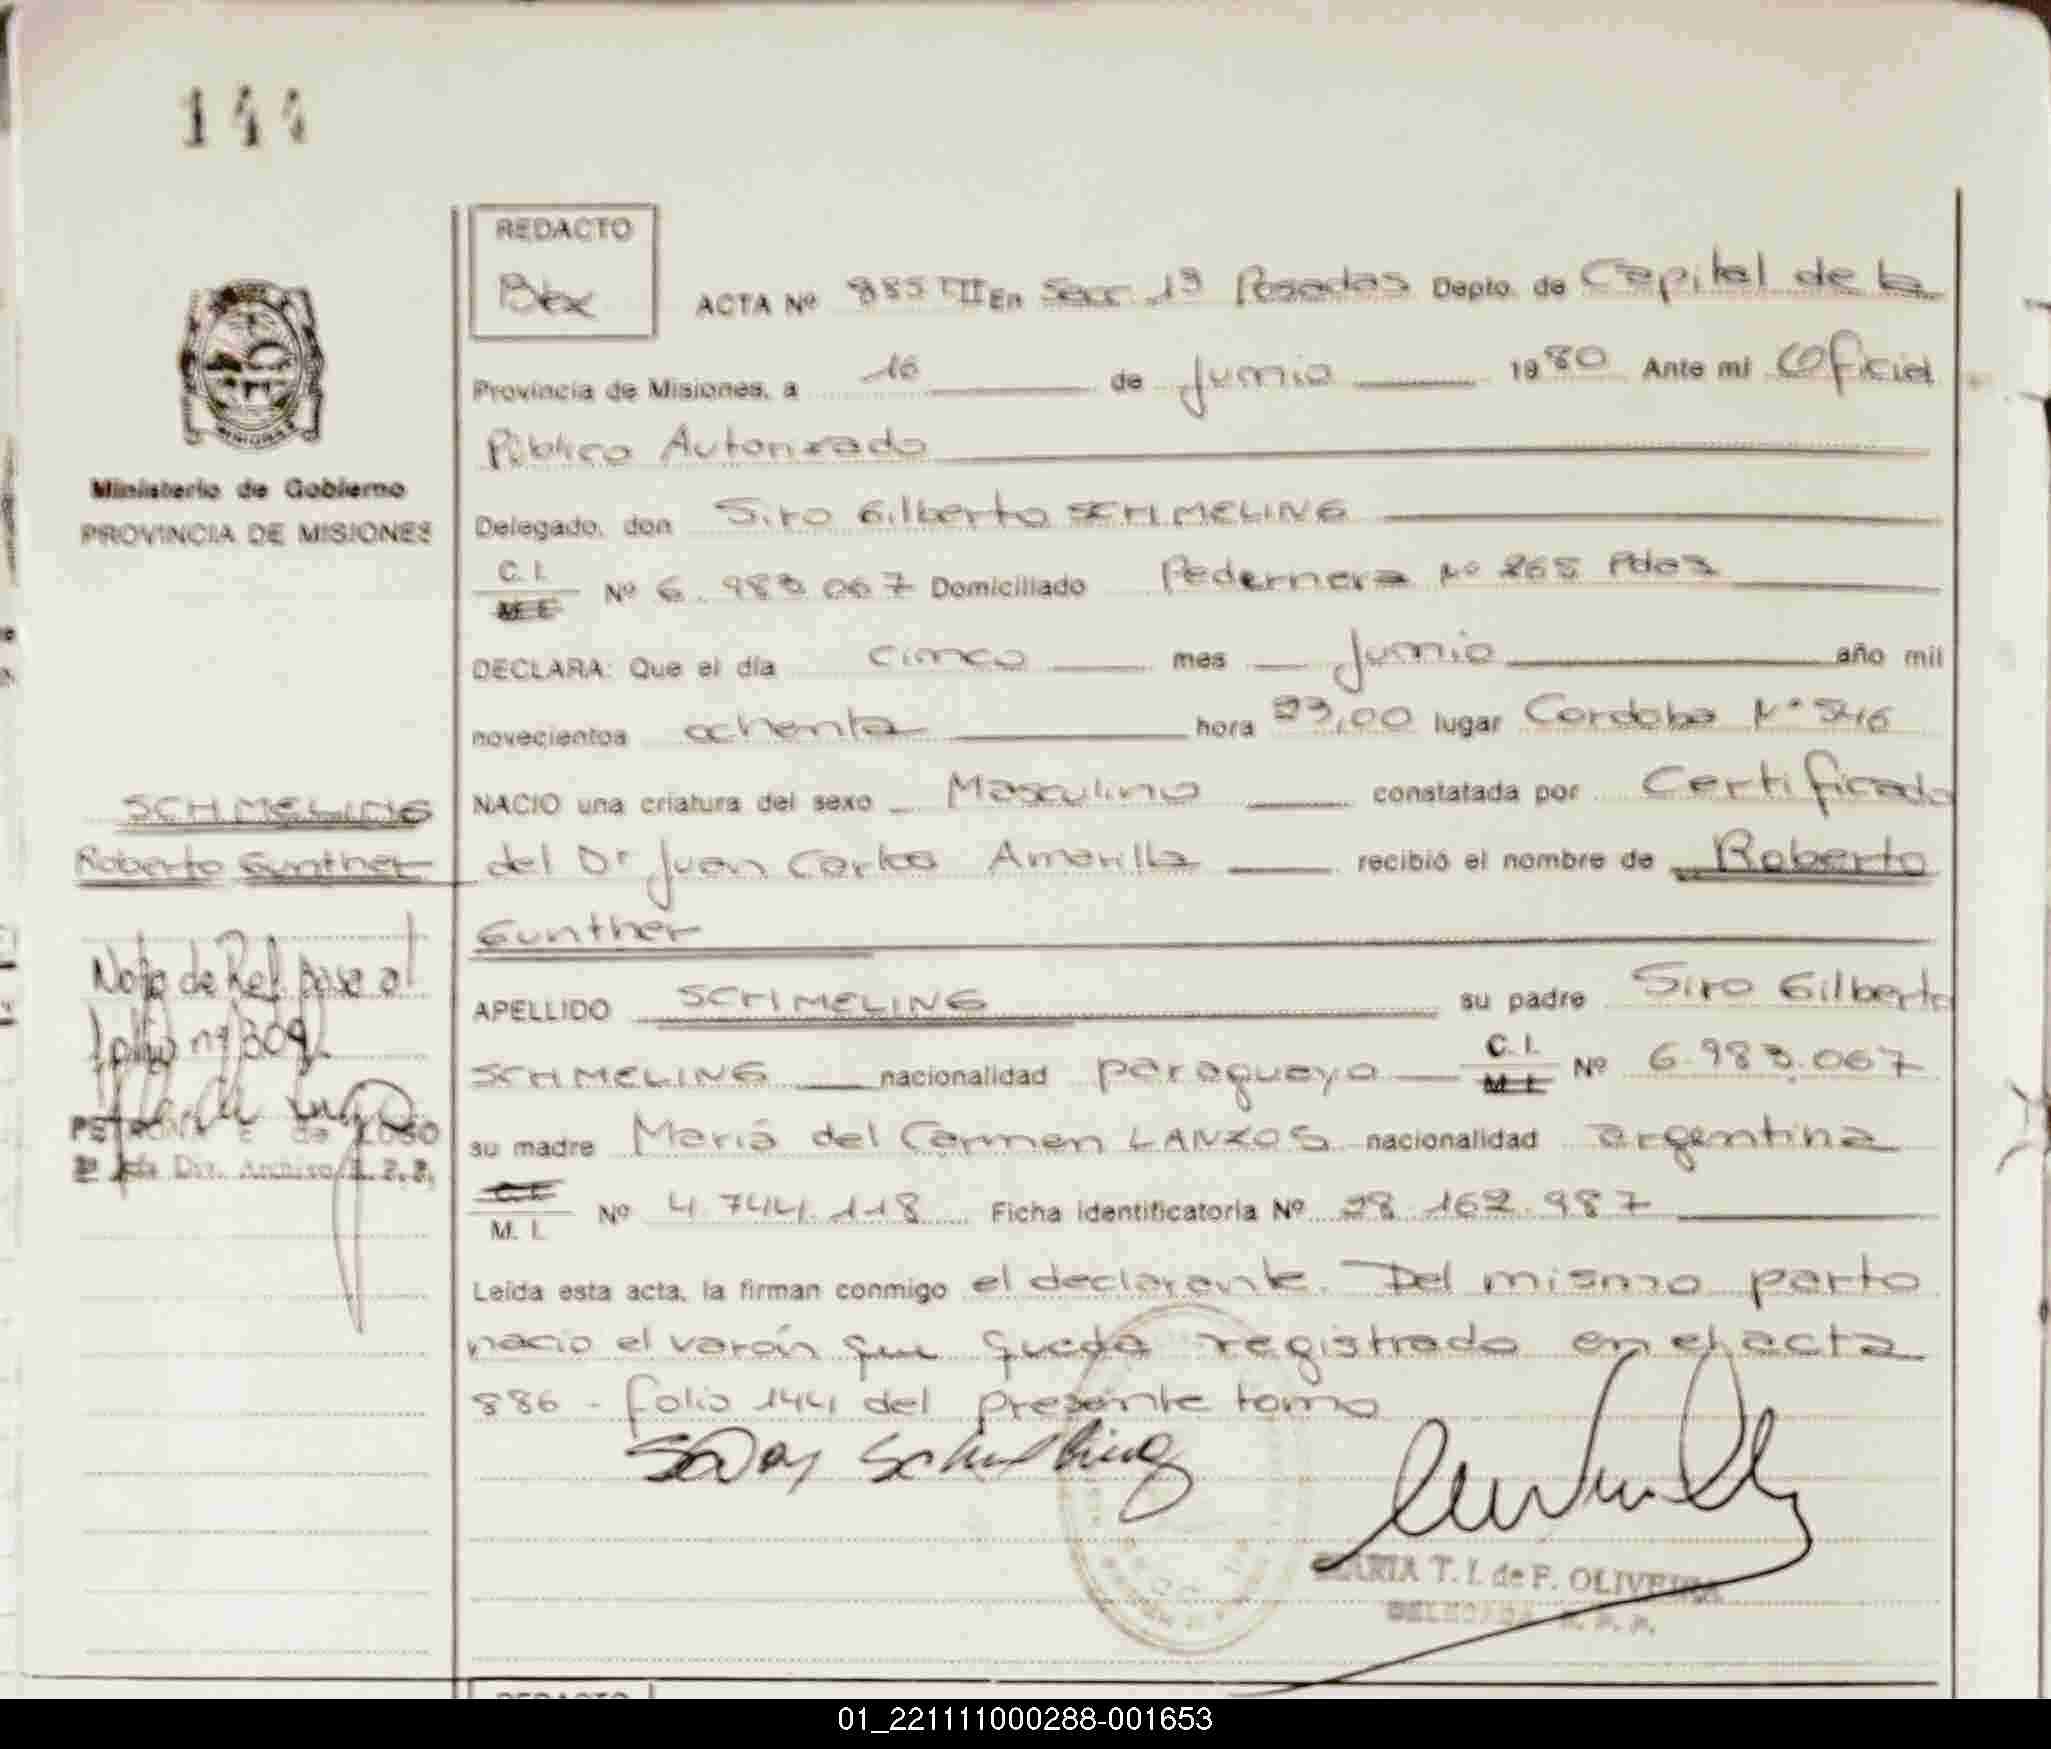 144
REDACTO
ACTA Nº 885 TIII En Secc 1ª Posadas Depto. de Capital de la
Provincia de Misiones, a 16 de Junio 1980 Ante mi Oficial
Público Autorizado
MISIONES
Ministerio de Gobierno
PROVINCIA DE MISIONES
Delegado, don Siro Gilberto SCHMELING
C. I. M. I. Nº 6.983.067 Domiciliado Pedernera Nº 265 Pdas
DECLARA: Que el día cinco mes Junio año mil
novecientos ochenta hora 23,00 lugar Cordoba Nº 546
SCHMELING
NACIO una criatura del sexo Masculino constatada por Certificado
Roberto Gunther
del Dr Juan Carlos Amarilla recibió el nombre de Roberto
Gunther
Nota de Ref. pase al
folio nº 309
APELLIDO SCHMELING su padre Siro Gilberto
SCHMELING nacionalidad paraguaya C. I. M. I. Nº 6.983.067
de LUGO
Archivo
su madre María del Carmen LANZOS nacionalidad argentina
C. I. M. I. Nº 4.744.118 Ficha identificatoria Nº 28.162.987
Leída esta acta, la firman conmigo el declarante. Del mismo parto
nacio el varón que queda registrado en el acta
886 - folio 144 del presente tomo
MARIA T. I. de F. OLIVEIRA
DELEGADA R. P. P.
REDACTO
01_221111000288-001653